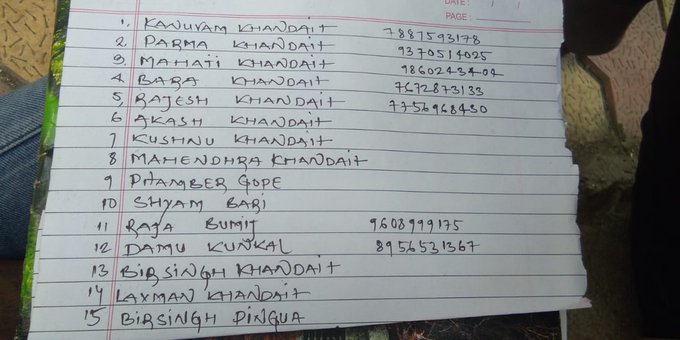 DATE: / /
PAGE:
1. KANURAM KHANDAIT 7887593178
2 PARMA KHANDAIT 9370514025
3 MAHATI KHANDAIT 9860243404
4 BARA KHANDAIT 7672873133
5, RAJESH KHANDAIT 7756968450
6 AKASH KHANDAIT
7 KUSHNU KHANDAIT
8 MAHENDHRA KHANDAIT
9 PITAMBER GOPE
10 SHYAM BARI
11 RAJA BUMIJ 9608999175
12 DAMU KUNKAL 8956531367
13 BIRSINGH KHANDAIT
14 LAXMAN KHANDAIT
15 BIRSINGH PINGUA